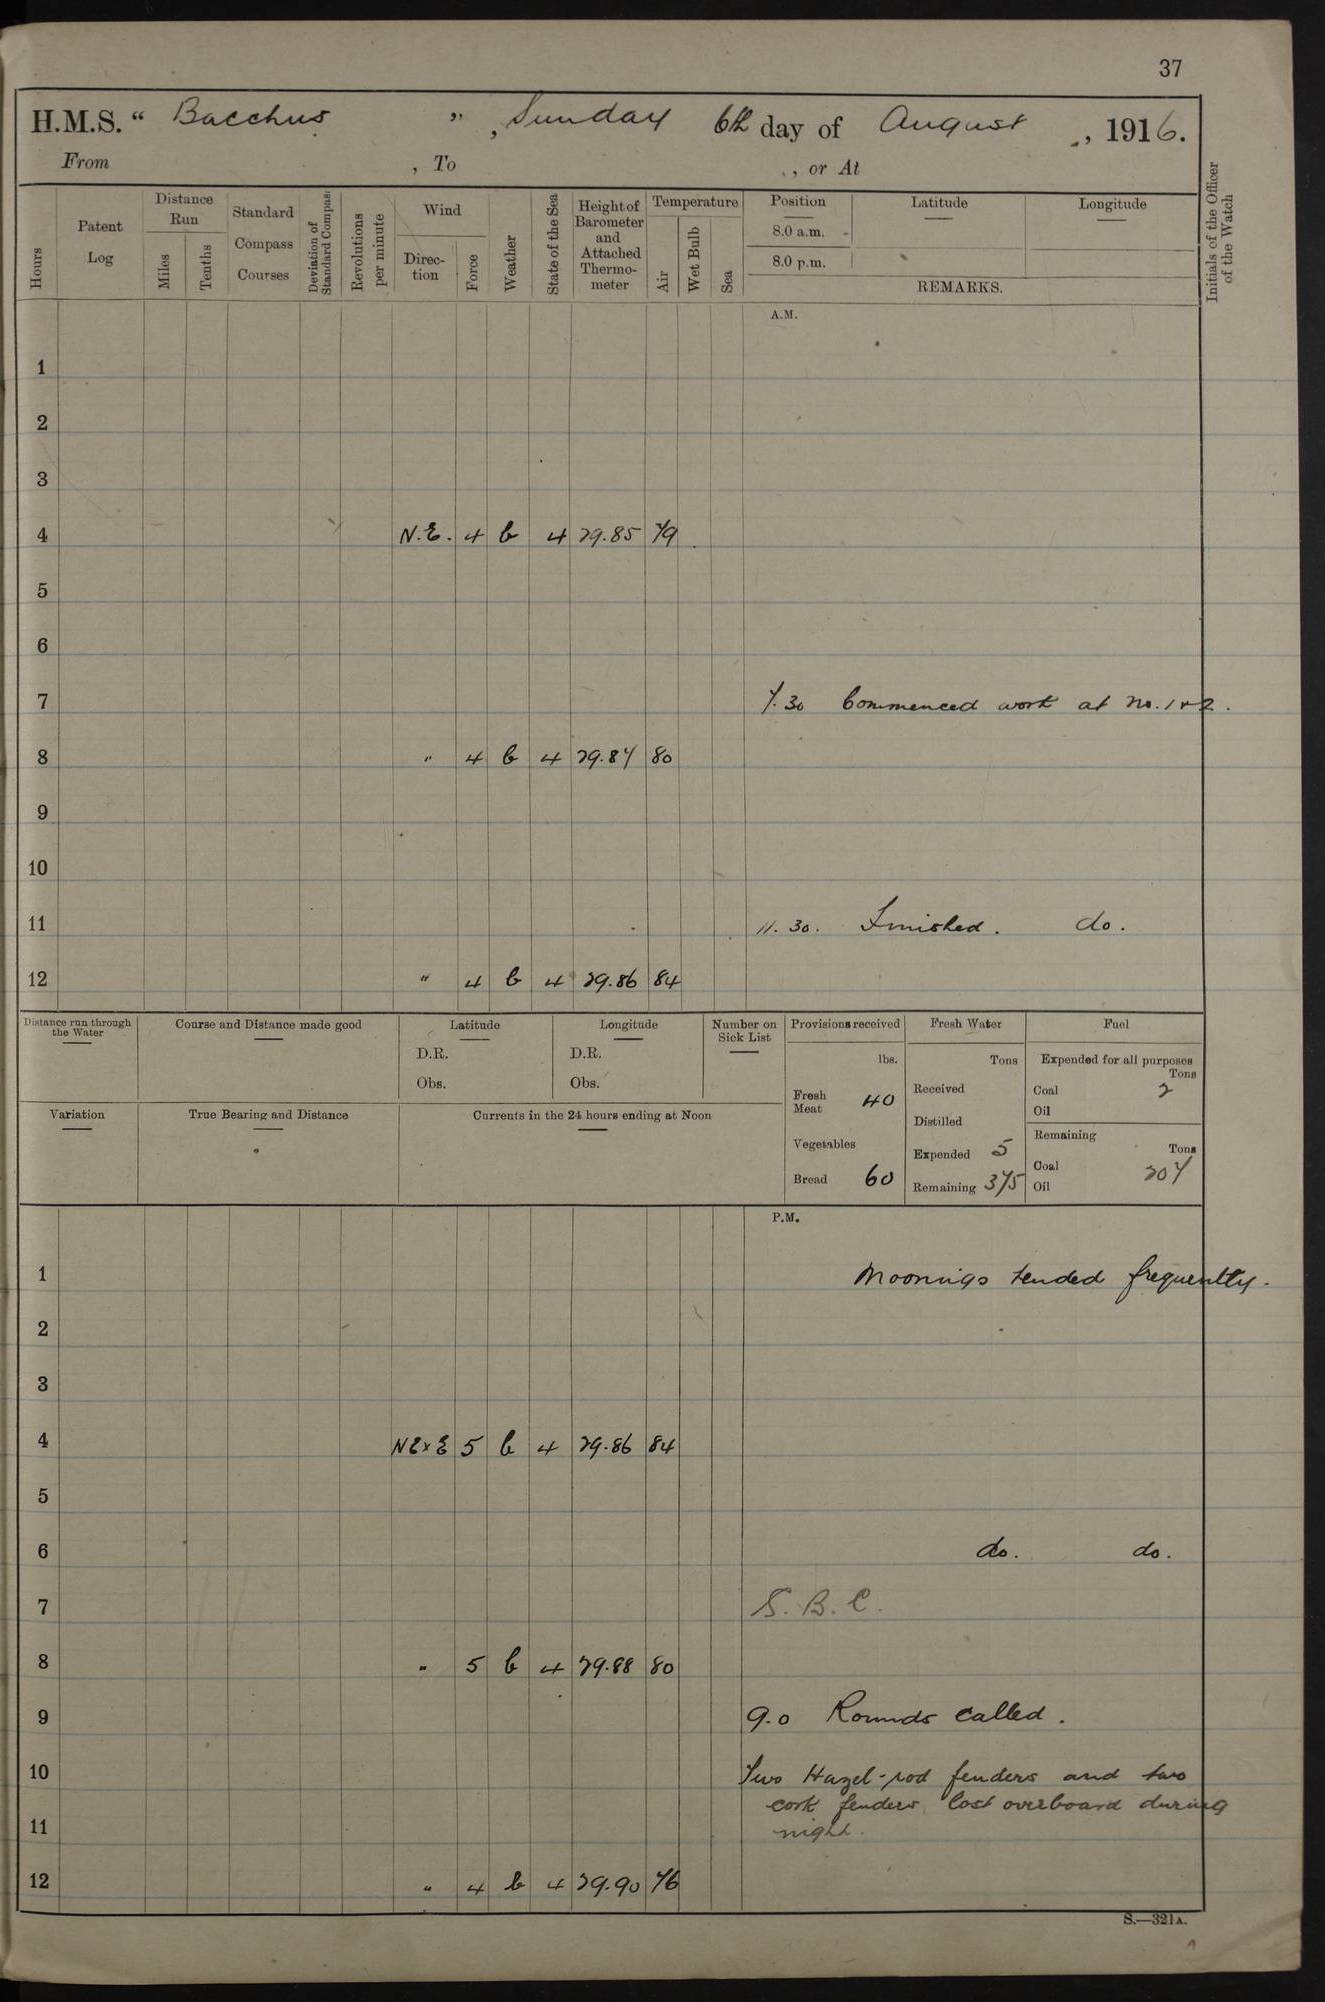 37
H.M.S. “ Bacchus ”, Sunday 6th day of August, 1916.
From , To , or At
Hours
Patent Log
Distance Run
Miles
Tenths
Standard Compass Courses
Deviation of Standard Compass
Revolutions per minute
Wind
Direction
Force
Weather
State of the Sea
Height of Barometer and Attached Thermometer
Temperature
Air
Wet Bulb
Sea
Position
8.0 a.m.
8.0 p.m.
Latitude
Longitude
REMARKS.
Initials of the Officer of the Watch
A.M.
1
2
3
4 N.E. 4 b 4 29.85 79
5
6
7 7.30 Commenced work at No. 1 & 2.
8 " 4 b 4 29.87 80
9
10
11 11.30. Finished. do.
12 " 4 b 4 29.86 84
Distance run through the Water
Course and Distance made good
Latitude
D.R.
Obs.
Longitude
D.R.
Obs.
Number on Sick List
Provisions received
lbs.
Fresh Meat 40
Vegetables
Bread 60
Fresh Water
Tons
Received
Distilled
Expended 5
Remaining 375
Fuel
Expended for all purposes
Tons
Coal 2
Oil
Remaining
Tons
Coal 207
Oil
Variation
True Bearing and Distance
Currents in the 24 hours ending at Noon
P.M.
1 Moorings tended frequently.
2
3
4 NExE 5 b 4 29.86 84
5
6 do. do.
7 S.B.C.
8 " 5 b 4 29.88 80
9 9.0 Rounds called.
10 Two Hazel-rod fenders and two
cork fenders lost overboard during
11 night.
12 " 4 b 4 29.90 76
S.—321A.